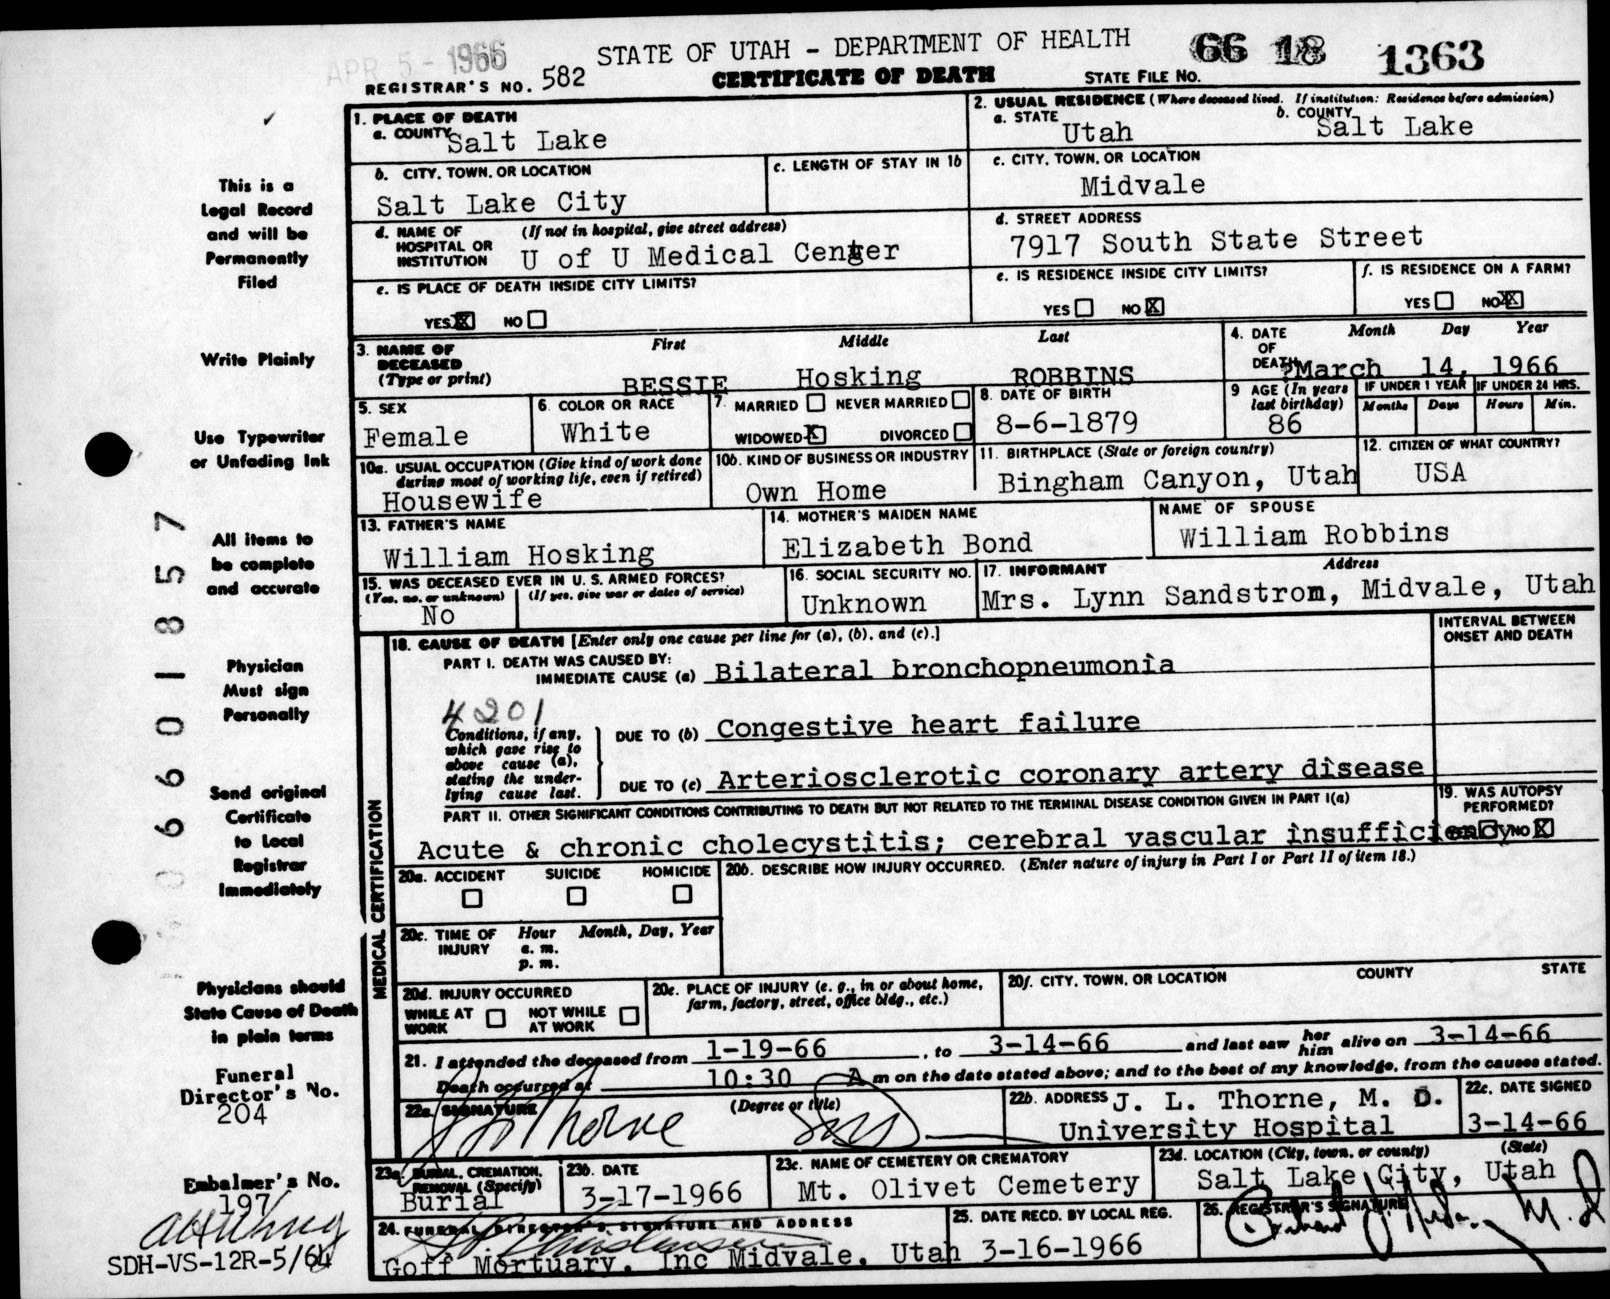 APR 5 - 1966
STATE OF UTAH - DEPARTMENT OF HEALTH
66 18 1363
REGISTRAR'S NO. 582
CERTIFICATE OF DEATH
STATE FILE NO.
1. PLACE OF DEATH
a. COUNTY
Salt Lake
2. USUAL RESIDENCE (Where deceased lived. If institution: Residence before admission)
a. STATE
Utah
b. COUNTY
Salt Lake
b. CITY, TOWN, OR LOCATION
Salt Lake City
c. LENGTH OF STAY IN 1b
c. CITY, TOWN, OR LOCATION
Midvale
d. NAME OF HOSPITAL OR INSTITUTION (If not in hospital, give street address)
U of U Medical Center
d. STREET ADDRESS
7917 South State Street
e. IS PLACE OF DEATH INSIDE CITY LIMITS?
YES X NO
e. IS RESIDENCE INSIDE CITY LIMITS?
YES NO X
f. IS RESIDENCE ON A FARM?
YES NO X
3. NAME OF DECEASED
(Type or print)
First Middle Last
BESSIE Hosking ROBBINS
4. DATE OF DEATH
Month Day Year
March 14, 1966
5. SEX
Female
6. COLOR OR RACE
White
7. MARRIED NEVER MARRIED
WIDOWED X DIVORCED
8. DATE OF BIRTH
8-6-1879
9 AGE (In years last birthday)
86
IF UNDER 1 YEAR
Months Days
IF UNDER 24 HRS.
Hours Min.
10a. USUAL OCCUPATION (Give kind of work done during most of working life, even if retired)
Housewife
10b. KIND OF BUSINESS OR INDUSTRY
Own Home
11. BIRTHPLACE (State or foreign country)
Bingham Canyon, Utah
12. CITIZEN OF WHAT COUNTRY?
USA
13. FATHER'S NAME
William Hosking
14. MOTHER'S MAIDEN NAME
Elizabeth Bond
NAME OF SPOUSE
William Robbins
15. WAS DECEASED EVER IN U. S. ARMED FORCES?
(Yes, no, or unknown) (If yes, give war or dates of service)
No
16. SOCIAL SECURITY NO.
Unknown
17. INFORMANT Address
Mrs. Lynn Sandstrom, Midvale, Utah
MEDICAL CERTIFICATION
18. CAUSE OF DEATH [Enter only one cause per line for (a), (b), and (c).]
INTERVAL BETWEEN ONSET AND DEATH
PART I. DEATH WAS CAUSED BY:
IMMEDIATE CAUSE (a) Bilateral bronchopneumonia
4201
Conditions, if any, which gave rise to above cause (a), stating the underlying cause last.
DUE TO (b) Congestive heart failure
DUE TO (c) Arteriosclerotic coronary artery disease
PART II. OTHER SIGNIFICANT CONDITIONS CONTRIBUTING TO DEATH BUT NOT RELATED TO THE TERMINAL DISEASE CONDITION GIVEN IN PART I(a)
Acute & chronic cholecystitis; cerebral vascular insufficiency
19. WAS AUTOPSY PERFORMED?
NO X
20a. ACCIDENT SUICIDE HOMICIDE
20b. DESCRIBE HOW INJURY OCCURRED. (Enter nature of injury in Part I or Part II of item 18.)
20c. TIME OF INJURY
Hour Month, Day, Year
a. m.
p. m.
20d. INJURY OCCURRED
WHILE AT WORK NOT WHILE AT WORK
20e. PLACE OF INJURY (e. g., in or about home, farm, factory, street, office bldg., etc.)
20f. CITY, TOWN, OR LOCATION COUNTY STATE
21. I attended the deceased from 1-19-66, to 3-14-66 and last saw her him alive on 3-14-66
Death occurred at 10:30 A m on the date stated above; and to the best of my knowledge, from the causes stated.
22a. SIGNATURE (Degree or title)
Thorne
22b. ADDRESS J. L. Thorne, M. D.
University Hospital
22c. DATE SIGNED
3-14-66
23a. BURIAL, CREMATION, REMOVAL (Specify)
Burial
23b. DATE
3-17-1966
23c. NAME OF CEMETERY OR CREMATORY
Mt. Olivet Cemetery
23d. LOCATION (City, town, or county) (State)
Salt Lake City, Utah
24. FUNERAL DIRECTOR'S SIGNATURE AND ADDRESS
Goff Mortuary, Inc Midvale, Utah
25. DATE RECD. BY LOCAL REG.
3-16-1966
26. REGISTRAR'S SIGNATURE
M.D.
This is a
Legal Record
and will be
Permanently
Filed
Write Plainly
Use Typewriter
or Unfading Ink
All items to
be complete
and accurate
Physician
Must sign
Personally
Send original
Certificate
to Local
Registrar
Immediately
Physicians should
State Cause of Death
in plain terms
Funeral
Director's No.
204
Embalmer's No.
197
SDH-VS-12R-5/64
0 6 6 0 1 8 5 7